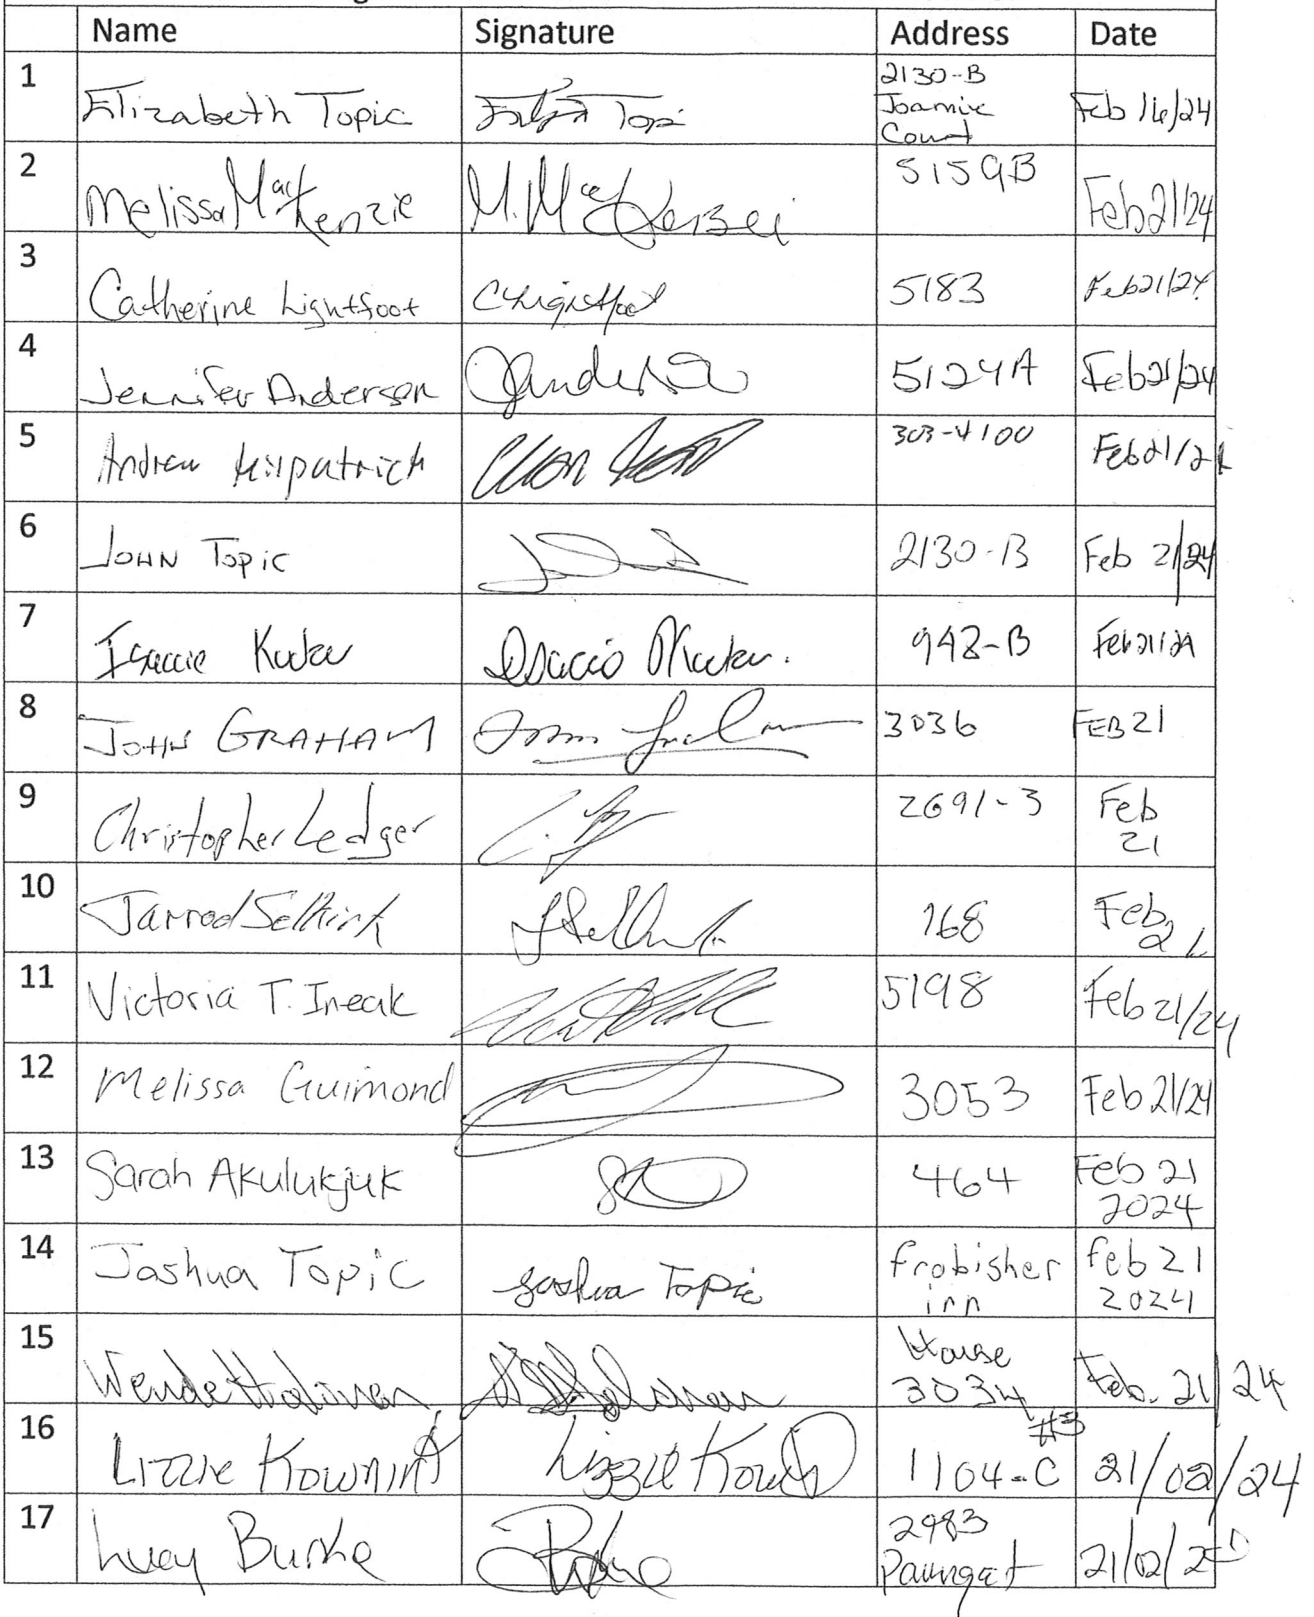 Name Signature Address Date
1 Elizabeth Topic Topi 2130-B Joamie Court Feb 16/24
2 Melissa MacKenzie M. Mac 5159B Feb 21/24
3 Catherine Lightfoot CLightfoot 5183 Feb 21/24
4 Jennifer Anderson JAnderson 5124A Feb 21/24
5 Andrew Kilpatrick 303-4100 Feb 21/24
6 JOHN Topic 2130-B Feb 21/24
7 942-B Feb 21/24
8 JOHN GRAHAM 3036 FEB 21
9 Christopher Ledger 2691-3 Feb 21
10 Jarrod Selkirk JSelkirk 168 Feb 21
11 Victoria T. Ineak 5198 Feb 21/24
12 Melissa Guimond 3053 Feb 21/24
13 Sarah Akulukjuk 464 Feb 21 2024
14 Joshua Topic Joshua Topic frobisher inn feb 21 2024
15 House 3034 #3 Feb. 21/24
16 Lizzie Lizzie 1104-C 21/02/24
17 Lucy Burke 2983 21/02/